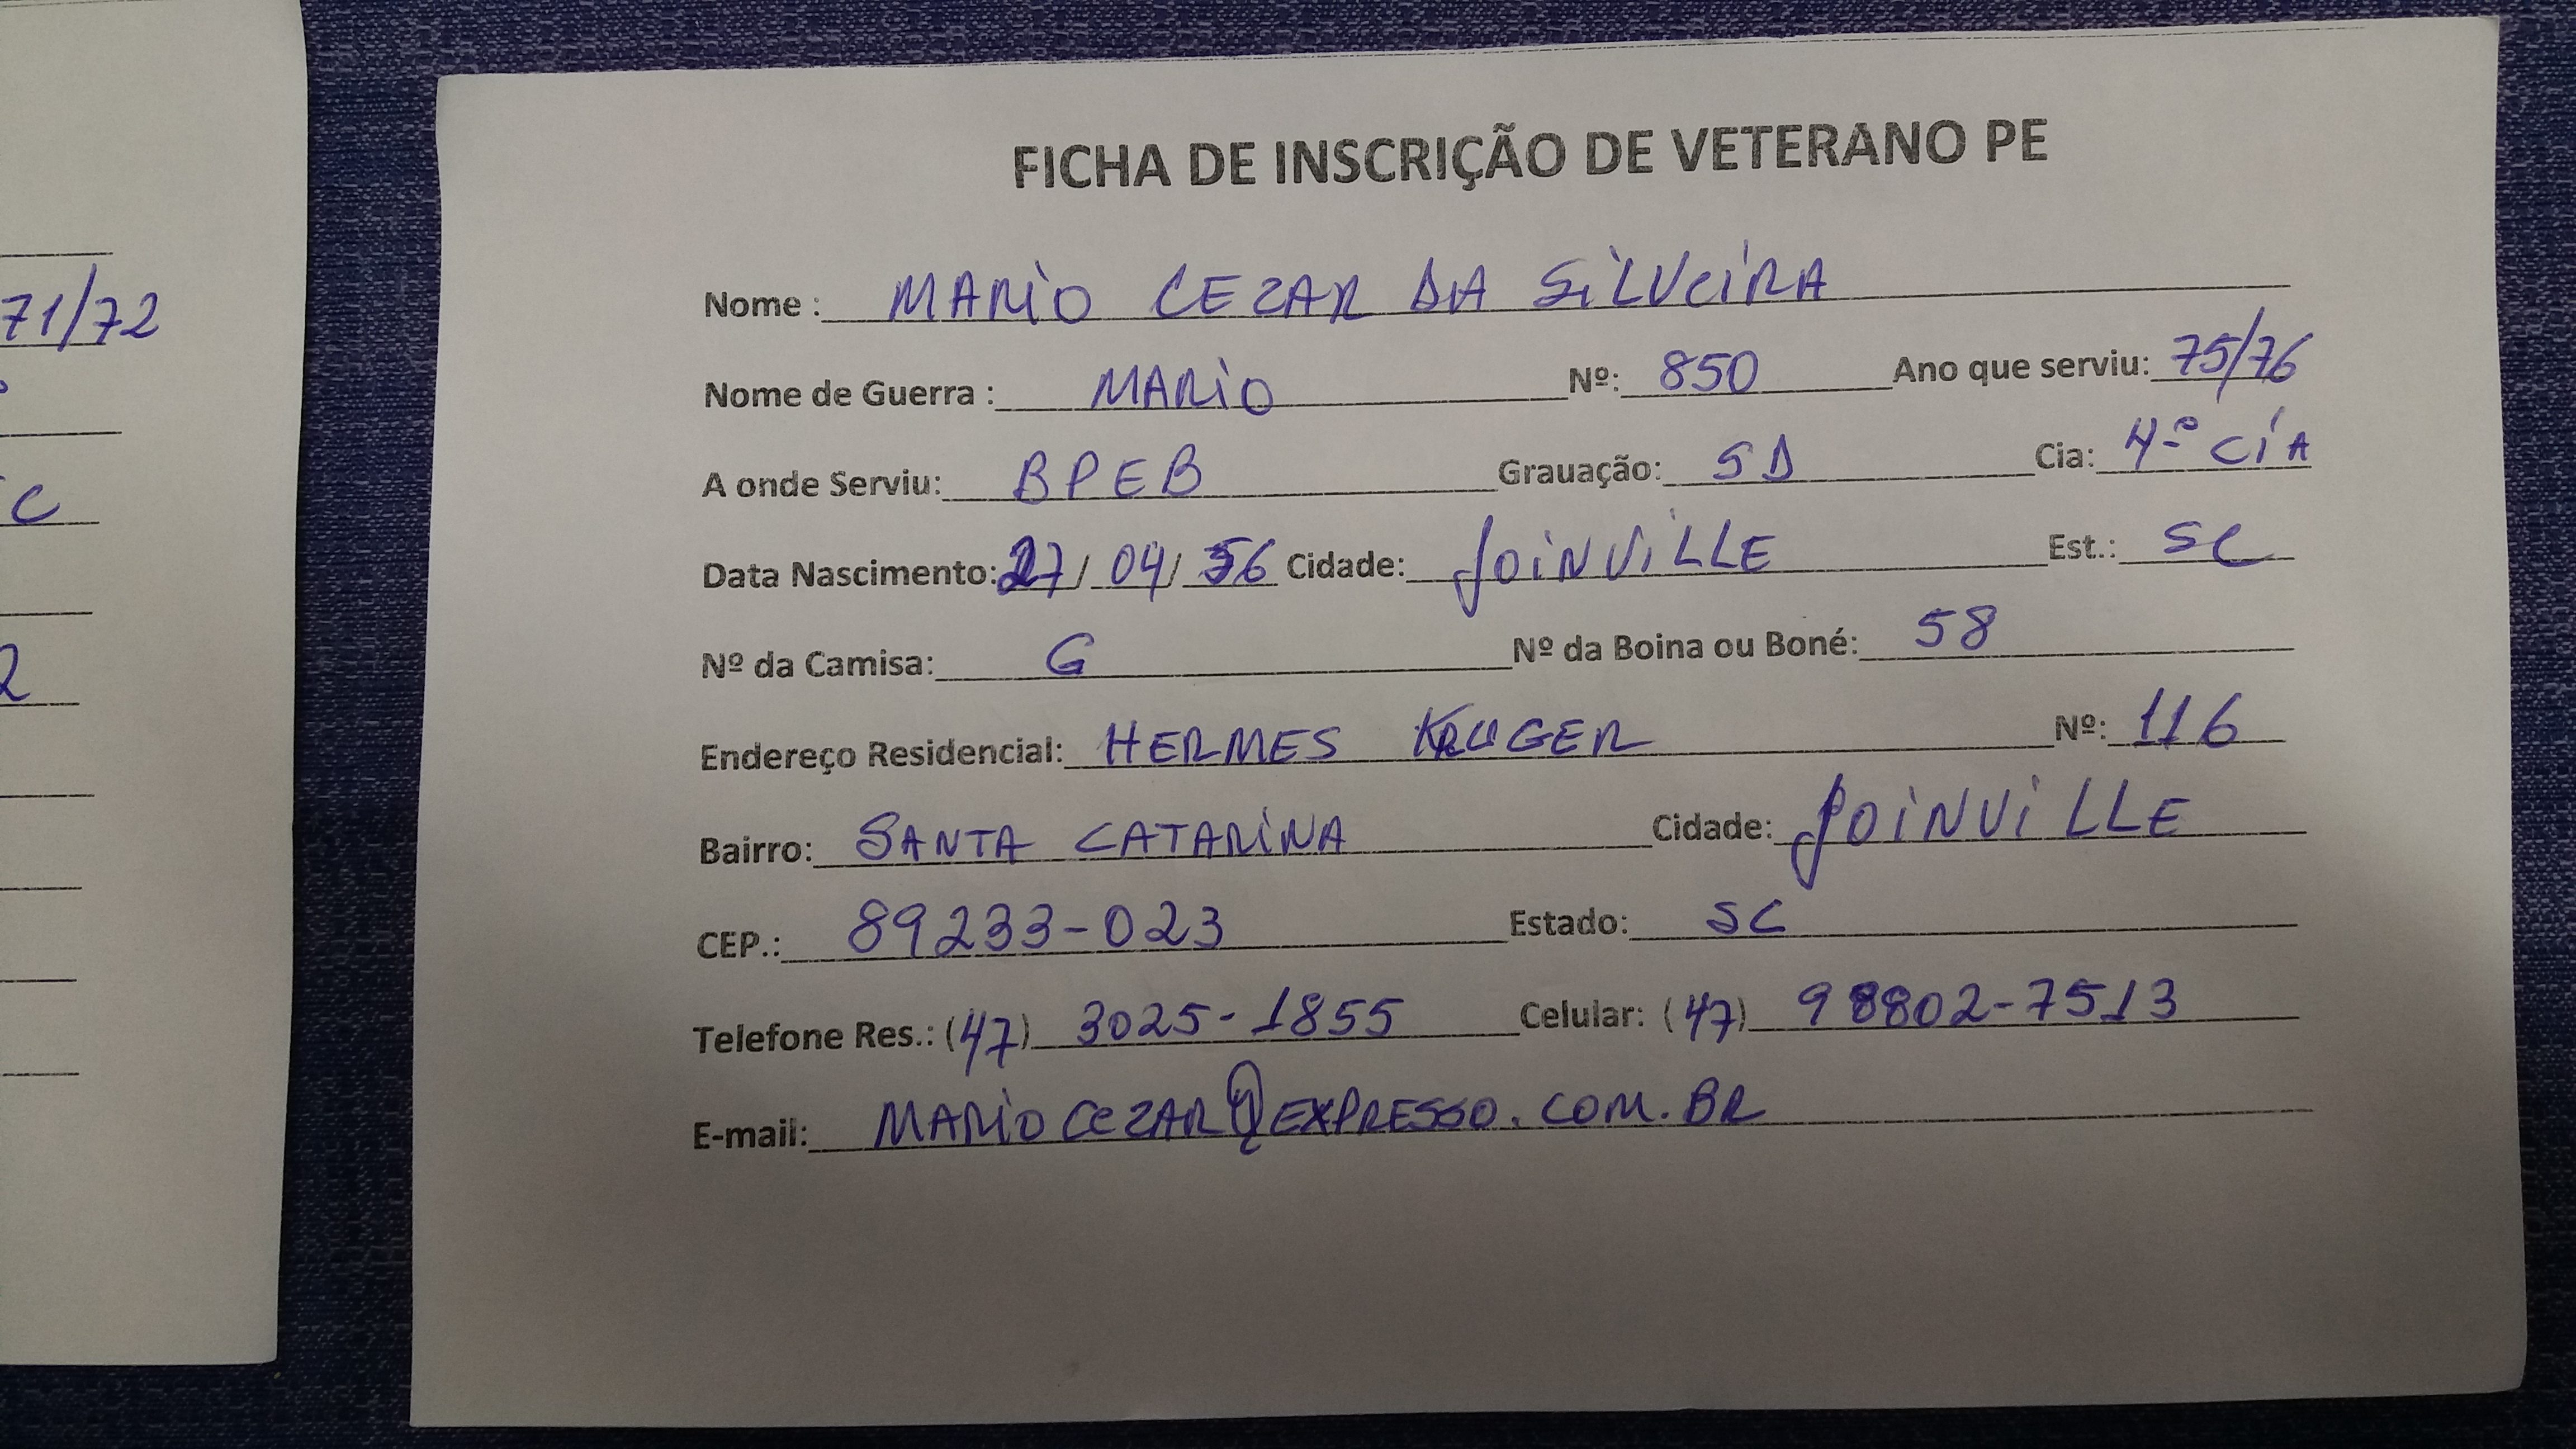 71/72
C
2
FICHA DE INSCRIÇÃO DE VETERANO PE
Nome : MARIO CEZAR DA SILVEIRA
Nome de Guerra : MARIO Nº: 850 Ano que serviu: 75/76
A onde Serviu: BPEB Grauação: SD Cia: 4º CÍA
Data Nascimento: 27/04/56 Cidade: JOINVILLE Est.: SC
Nº da Camisa: G Nº da Boina ou Boné: 58
Endereço Residencial: HERMES KRUGER Nº: 116
Bairro: SANTA CATARINA Cidade: JOINVILLE
CEP.: 89233-023 Estado: SC
Telefone Res.: (47) 3025-1855 Celular: (47) 98802-7513
E-mail: MARIOCEZAR@EXPRESSO.COM.BR